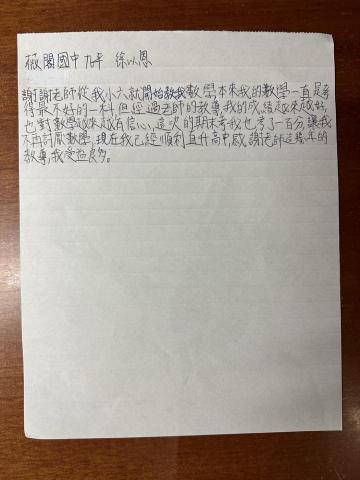 薇閣國中 九年 徐以恩
謝謝老師從我小六就開始教我數學,本來我的數學一直是考
得最不好的一科,但經過老師的教導,我的成績越來越好,
也對數學越來越有信心,這次的期末考我也考了一百分,讓我
不再討厭數學,現在我已經順利直升高中,感謝老師這幾年的
教導,我受益良多。